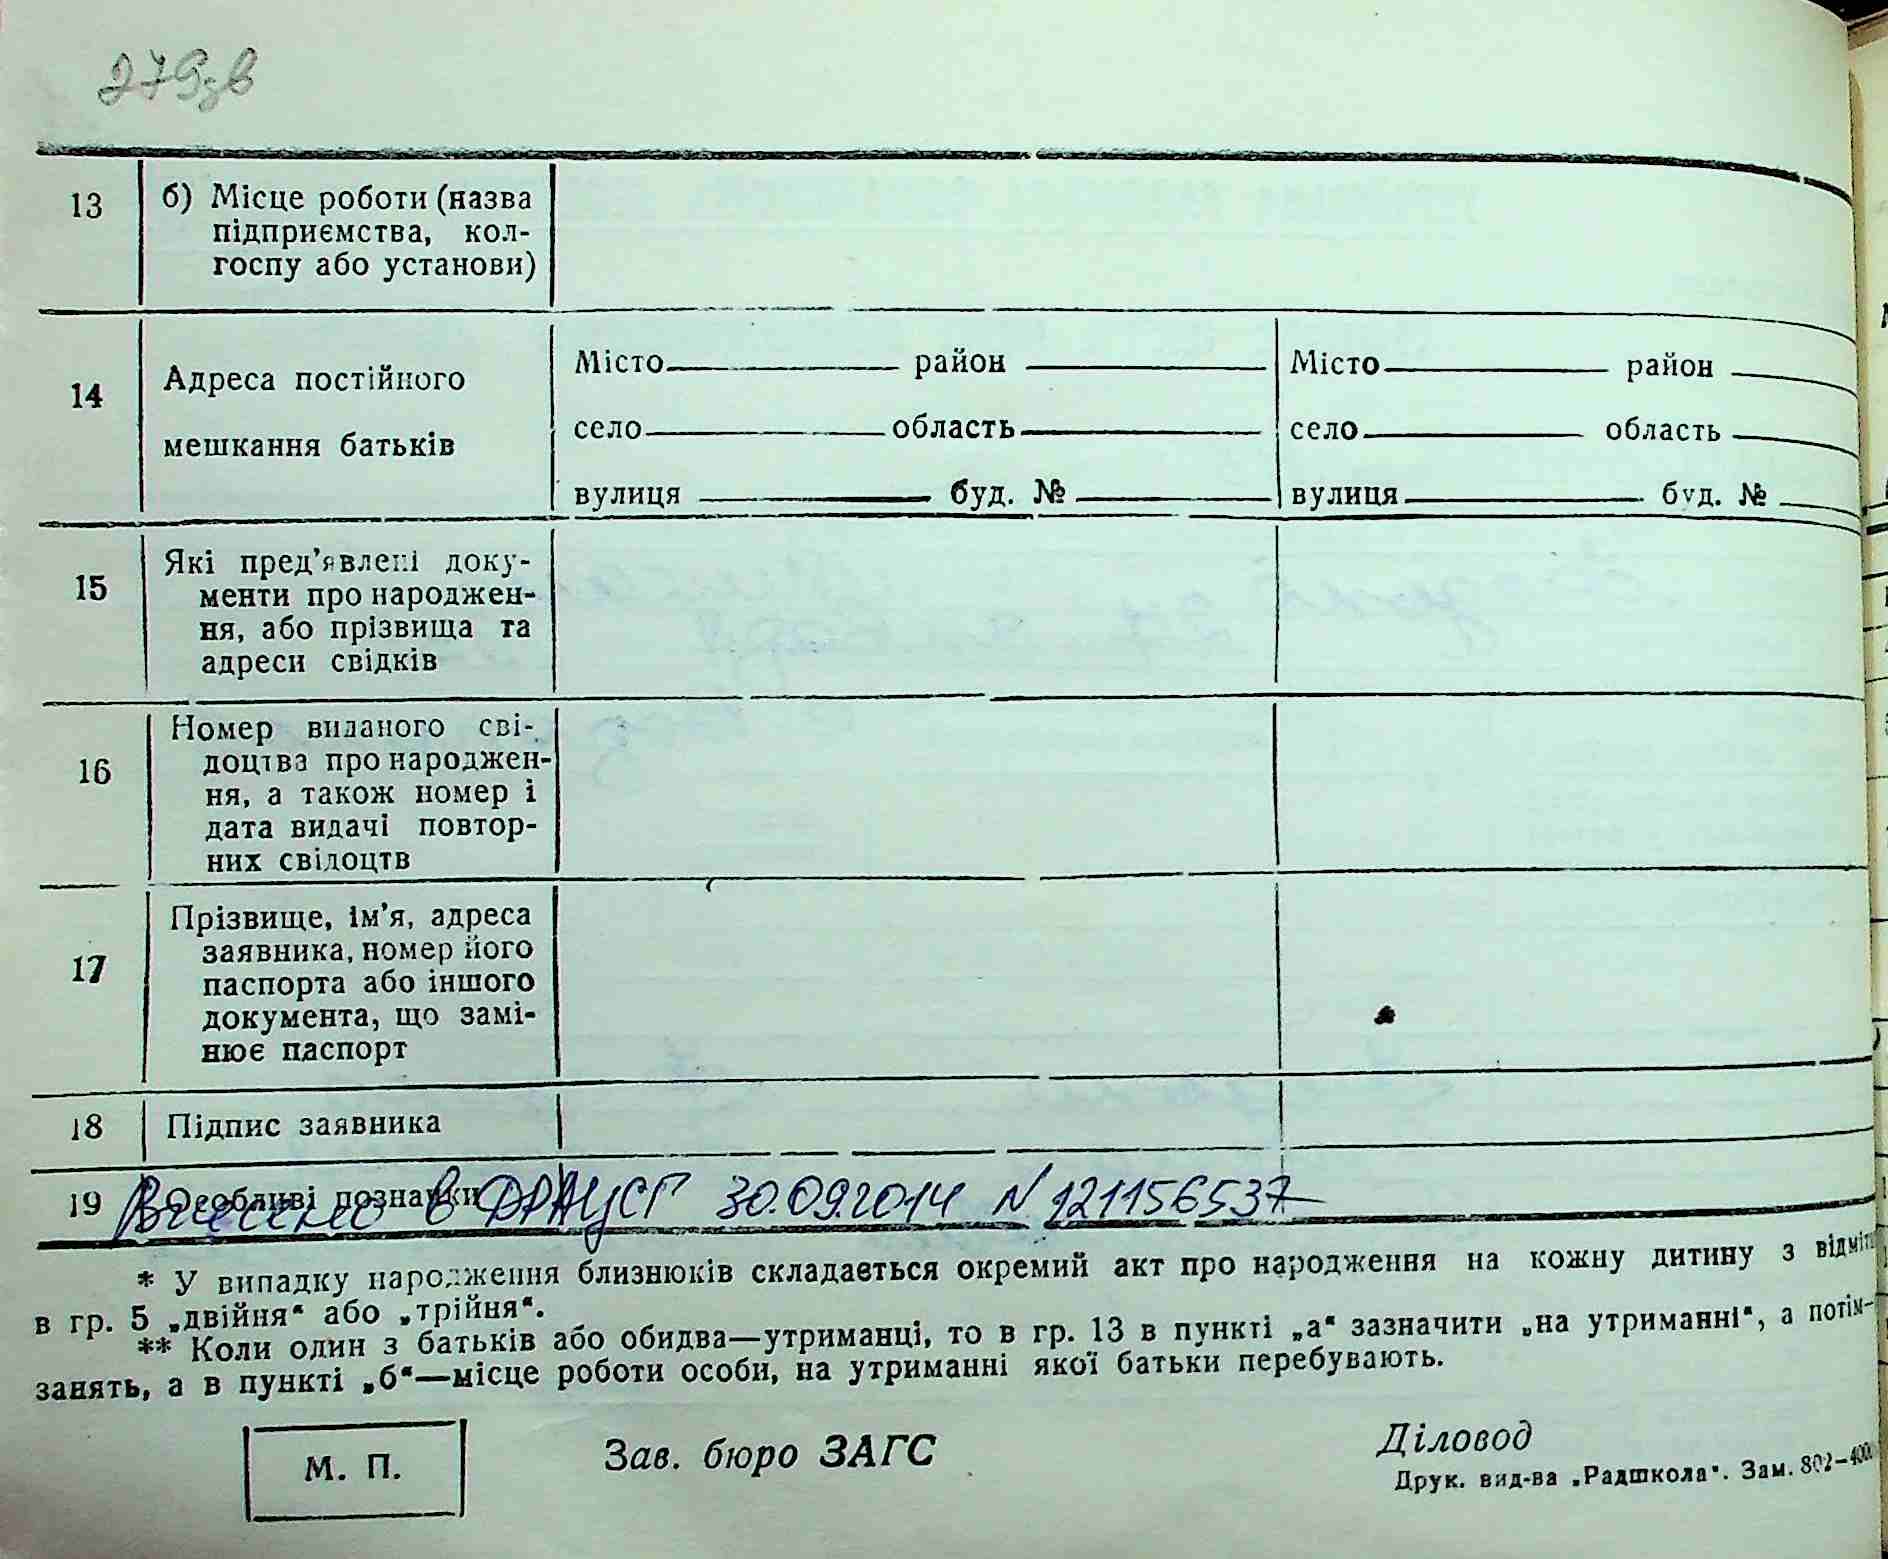 279зв
13 б) Місце роботи (назва
підприємства, кол-
госпу або установи)
14 Адреса постійного
мешкання батьків
Місто район Місто район
село область село область
вулиця буд. № вулиця буд. №
15 Які пред’явлені доку-
менти про народжен-
ня, або прізвища та
адреси свідків
16 Номер виданого сві-
доцтва про народжен-
ня, а також номер і
дата видачі повтор-
них свідоцтв
17 Прізвище, ім’я, адреса
заявника, номер його
паспорта або іншого
документа, що замі-
нює паспорт
18 Підпис заявника
19 Особливі позначки
Внесено в ДРАЦСГ 30.09.2014 N 121156537
* У випадку народження близнюків складається окремий акт про народження на кожну дитину з відміт
в гр. 5 „двійня“ або „трійня“.
** Коли один з батьків або обидва—утриманці, то в гр. 13 в пункті „а“ зазначити „на утриманні“, а потім—
занять, а в пункті „б“—місце роботи особи, на утриманні якої батьки перебувають.
М. П. Зав. бюро ЗАГС Діловод
Друк. вид-ва „Радшкола“. Зам. 802—400